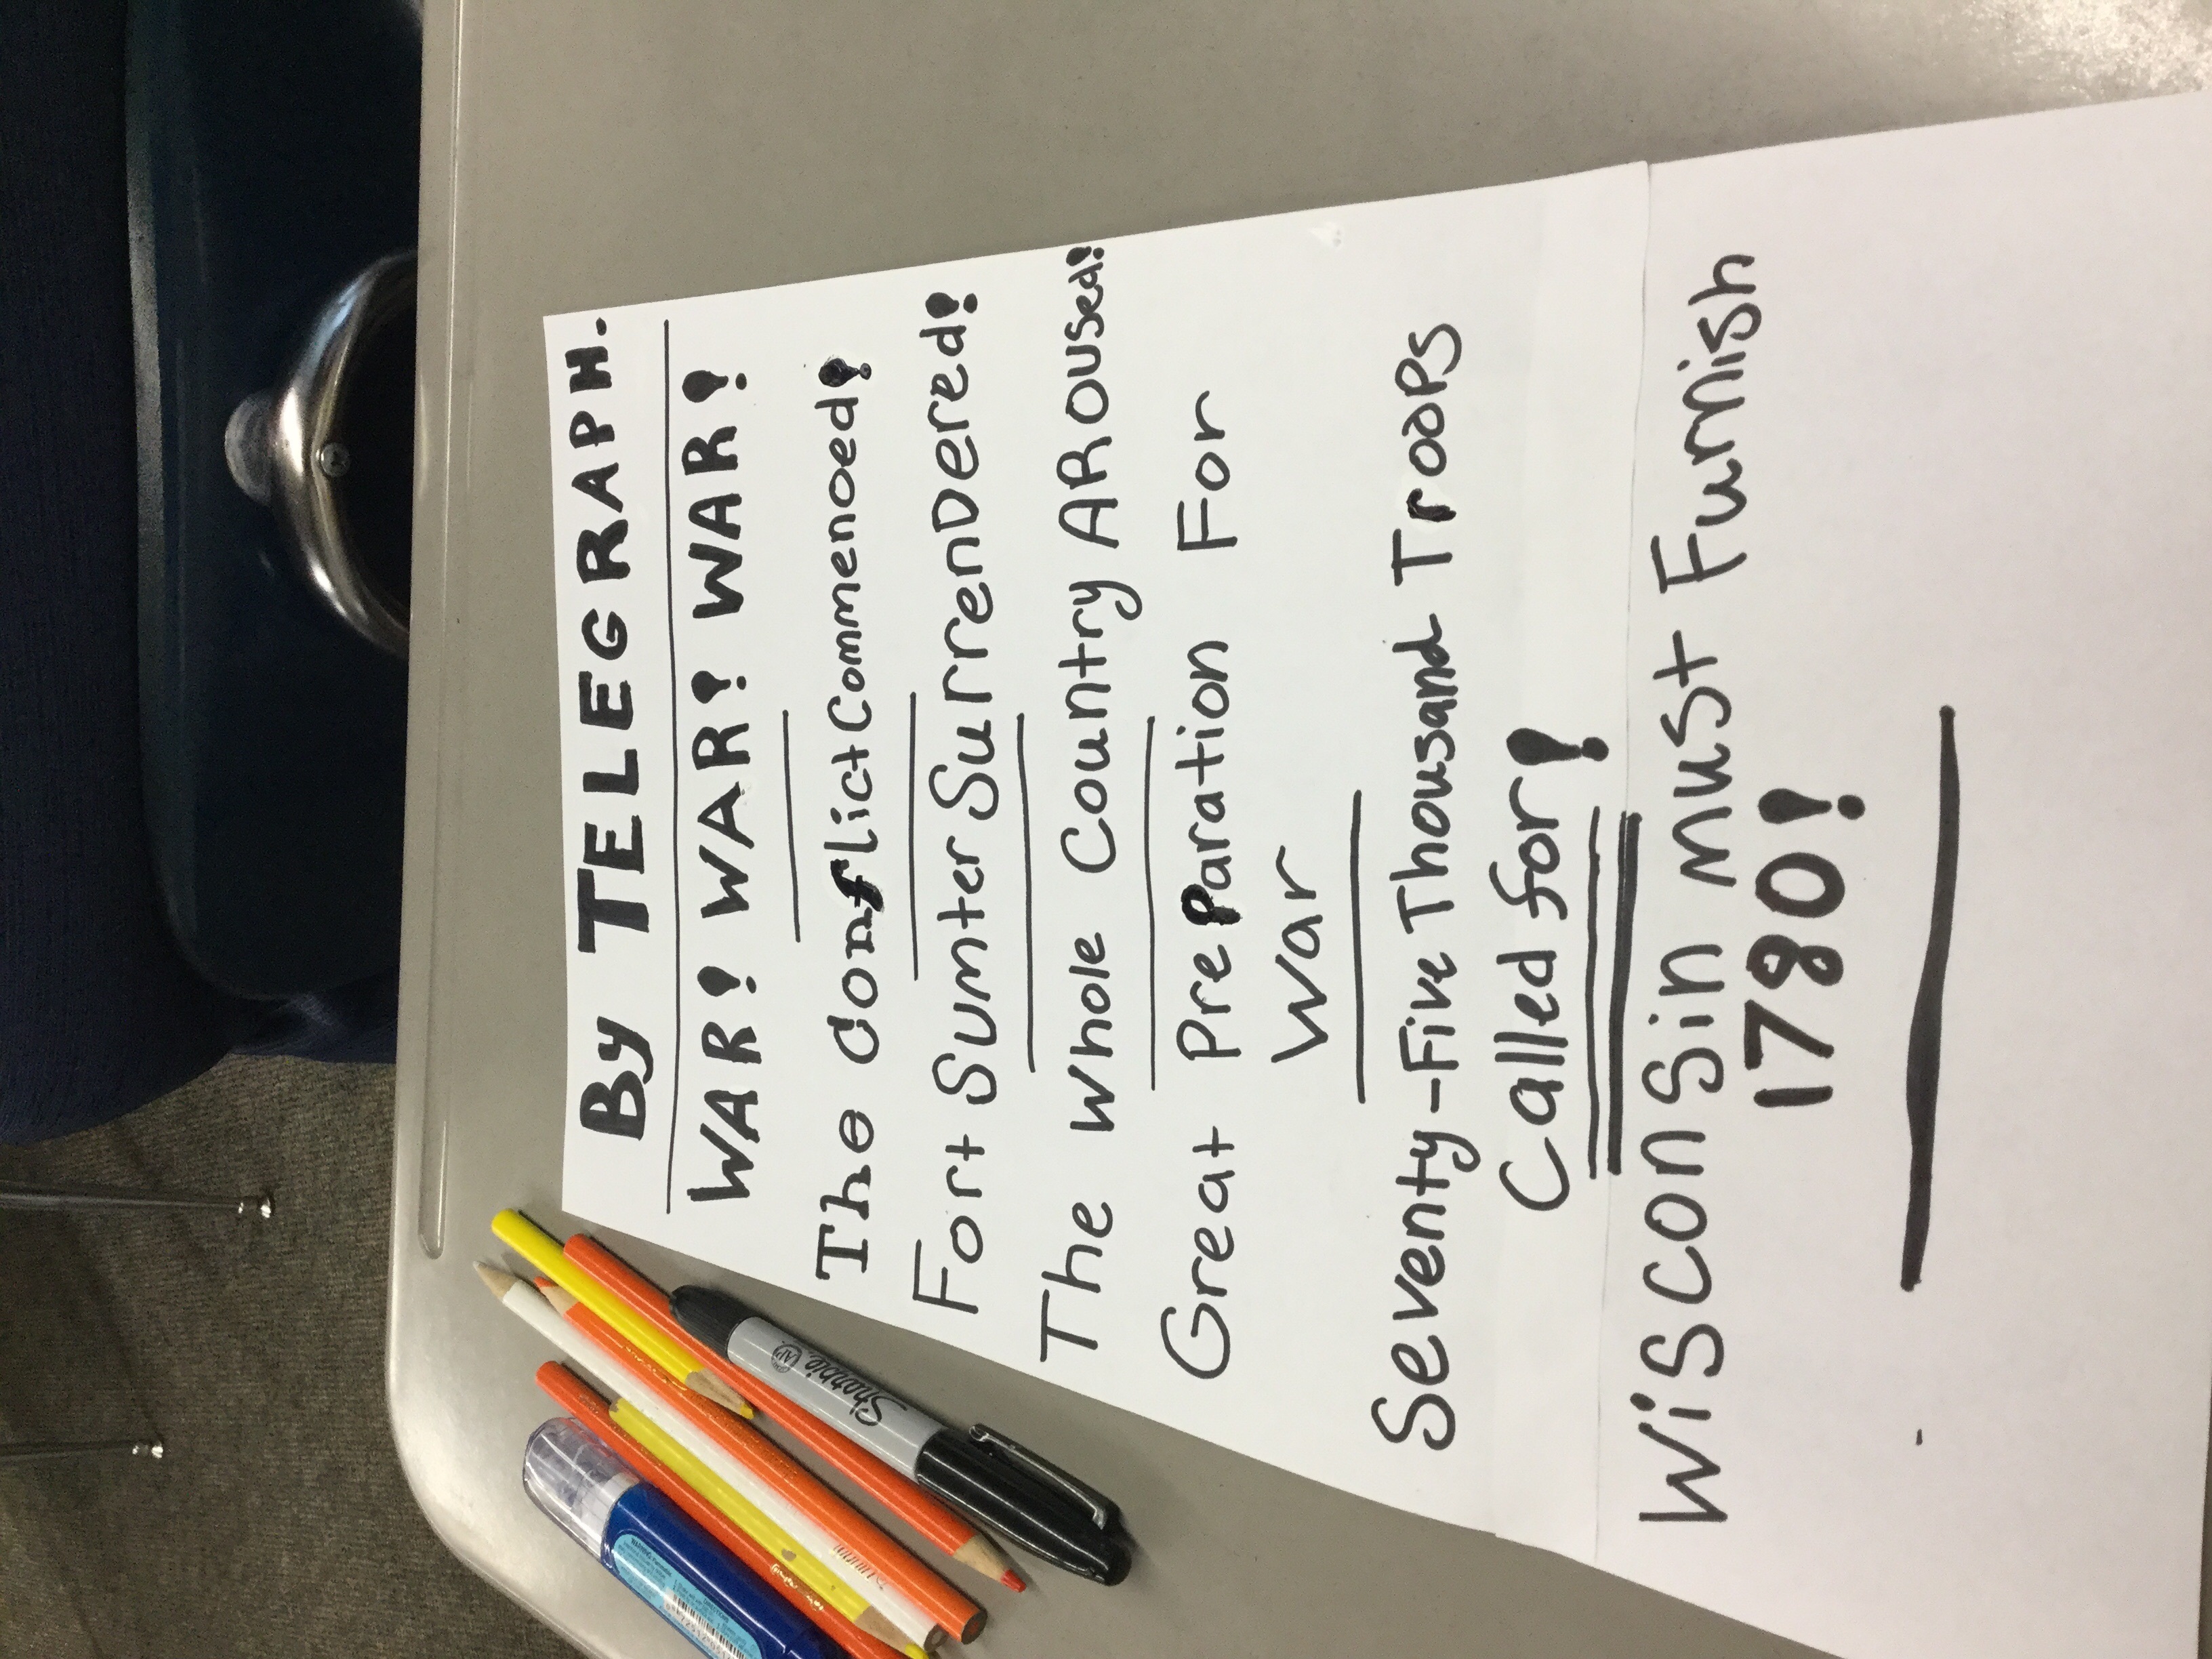 By TELEGRAPH.
WAR! WAR! WAR!
The ConflictCommenoed!
Fort Sumter SurrenDered!
The whole Country ARoused!
Great PreParation For
war
Seventy-Five Thousand Troops
Called for!
Wisconsin must Furnish
1780!
Sharpie